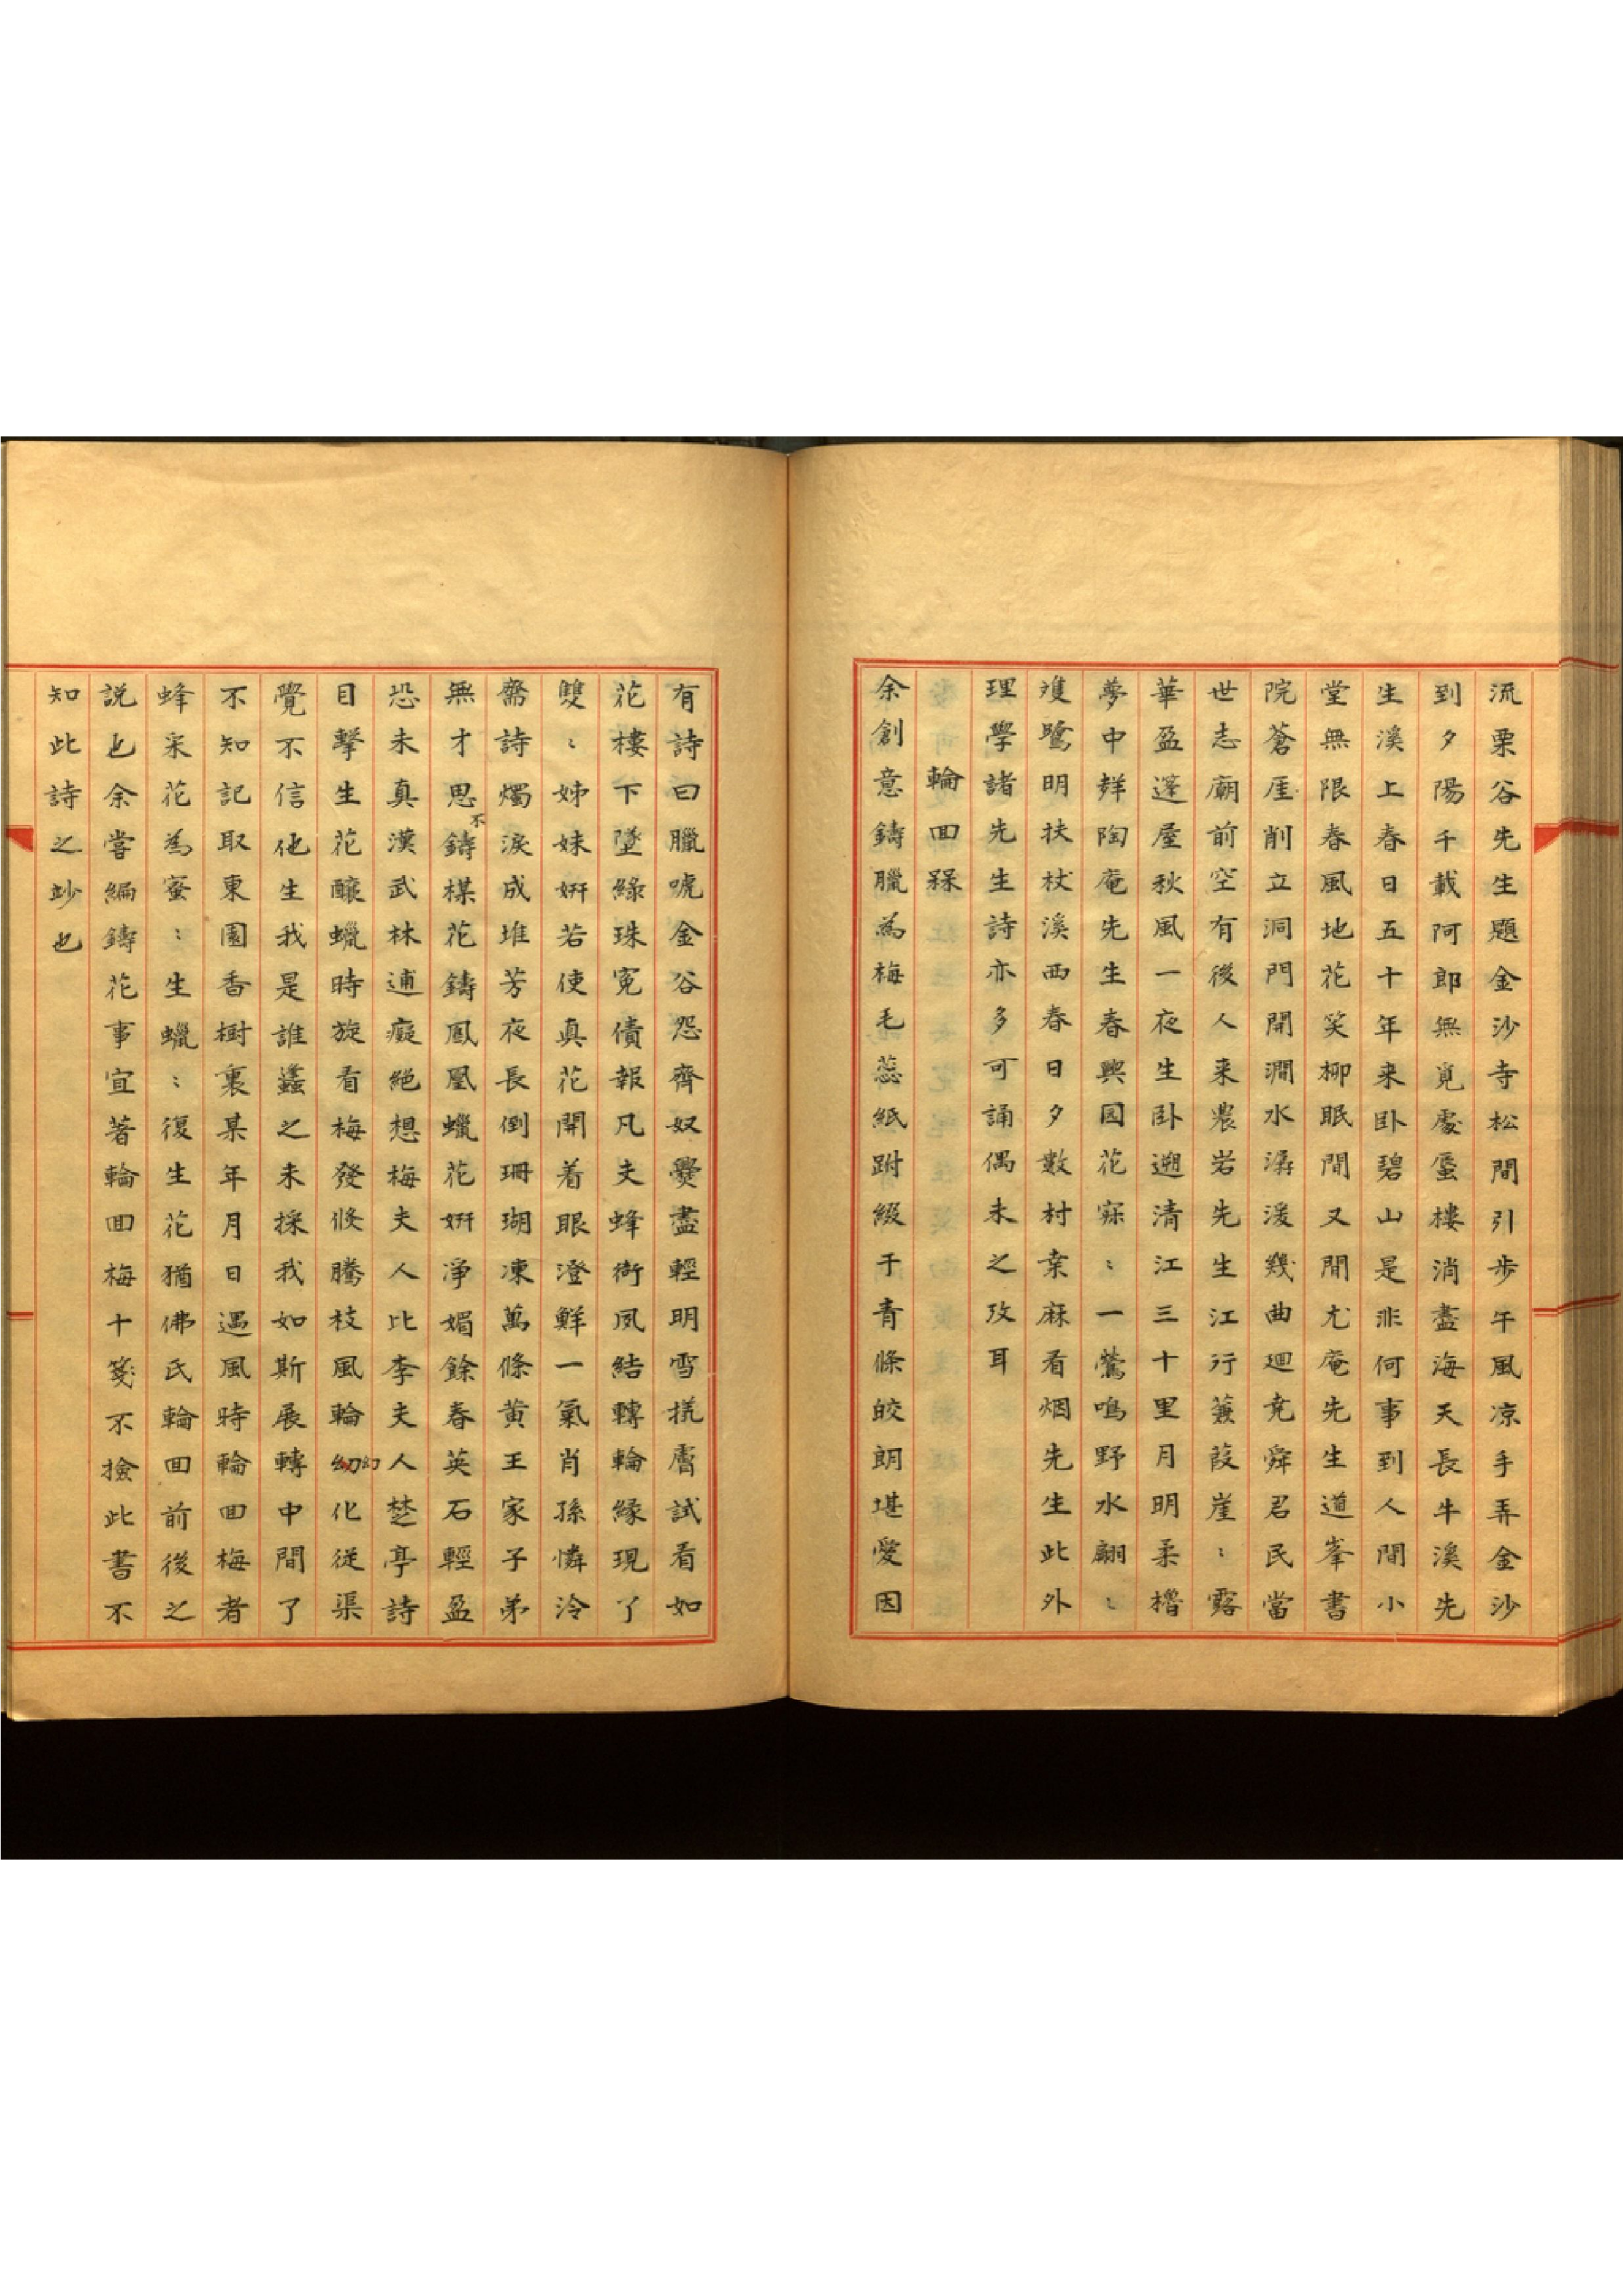 流栗谷先生題金沙寺松間引步午風凉手弄金沙
到夕陽千載阿郎無覓處蜃樓消盡海天長牛溪先
生溪上春日五十年来卧碧山是非何事到人間小
堂無限春風地花笑柳眠閒又閒尤庵先生道峯書
院蒼厓削立洞門開澗水潺湲幾曲廻堯舜君民當
世志廟前空有後人来農岩先生江行蒹葭崖〻露
華盈蓬屋秋風一夜生卧遡清江三十里月明柔櫓
夢中鮮陶庵先生春興囩花寂〻一鶯鳴野水翩〻
䨥鷺明扶杖溪西春日夕數村桒麻看烟先生此外
理學諸先生詩亦多可誦偶未之攷耳
輪回槑
余創意鑄臘為梅毛蕊紙跗綴于青條皎朗堪愛因
有詩曰臘唬金谷怨齊奴爨盡輕明雪㨾膚試看如
花樓下墜綠珠寃債報凡夫蜂衙夙結轉輪緣現了
雙〻姊妹姸若使真花開着眼澄鮮一氣肖孫憐泠
齋詩燭淚成堆芳夜長倒珊瑚凍萬條黄王家子弟
無才思不鑄楳花鑄鳳凰蠟花姸淨媚餘春英石輕盈
恐未真漢武林逋癡絕想梅夫人比李夫人楚亭詩
目擊生花釀蠟時旋看梅發倏騰枝風輪幼幻化従渠
覺不信他生我是誰蠭之未採我如斯展轉中間了
不知記取東園香樹裏某年月日遇風時輪回梅者
蜂采花為蜜〻生蠟〻復生花猶佛氏輪回前後之
説也余嘗編鑄花事宜著輪回梅十箋不撿此書不
知此詩之妙也